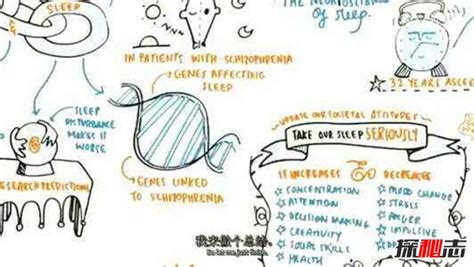 SLEEP
THE NEUROSCIENCE
OF SLEEP
IN PATIENTS WITH SCHIZOPHRENIA
GENES AFFECTING
SLEEP
32 YEARS ASLEEP
SLEEP
DISTURBANCE
MAKES IT
WORSE
UPDATE OUR SOCIETAL ATTITUDES
TAKE OUR SLEEP SERIOUSLY
RESEARCH PREDICTIONS
GENES LINKED
TO SCHIZOPHRENIA
IT INCREASES
CONCENTRATION
ATTENTION
DECISION MAKING
CREATIVITY
SOCIAL SKILLS
HEALTH
DECREASES
MOOD CHANGE
STRESS
ANGER
我来做个总结
So let me just finish.
探秘志